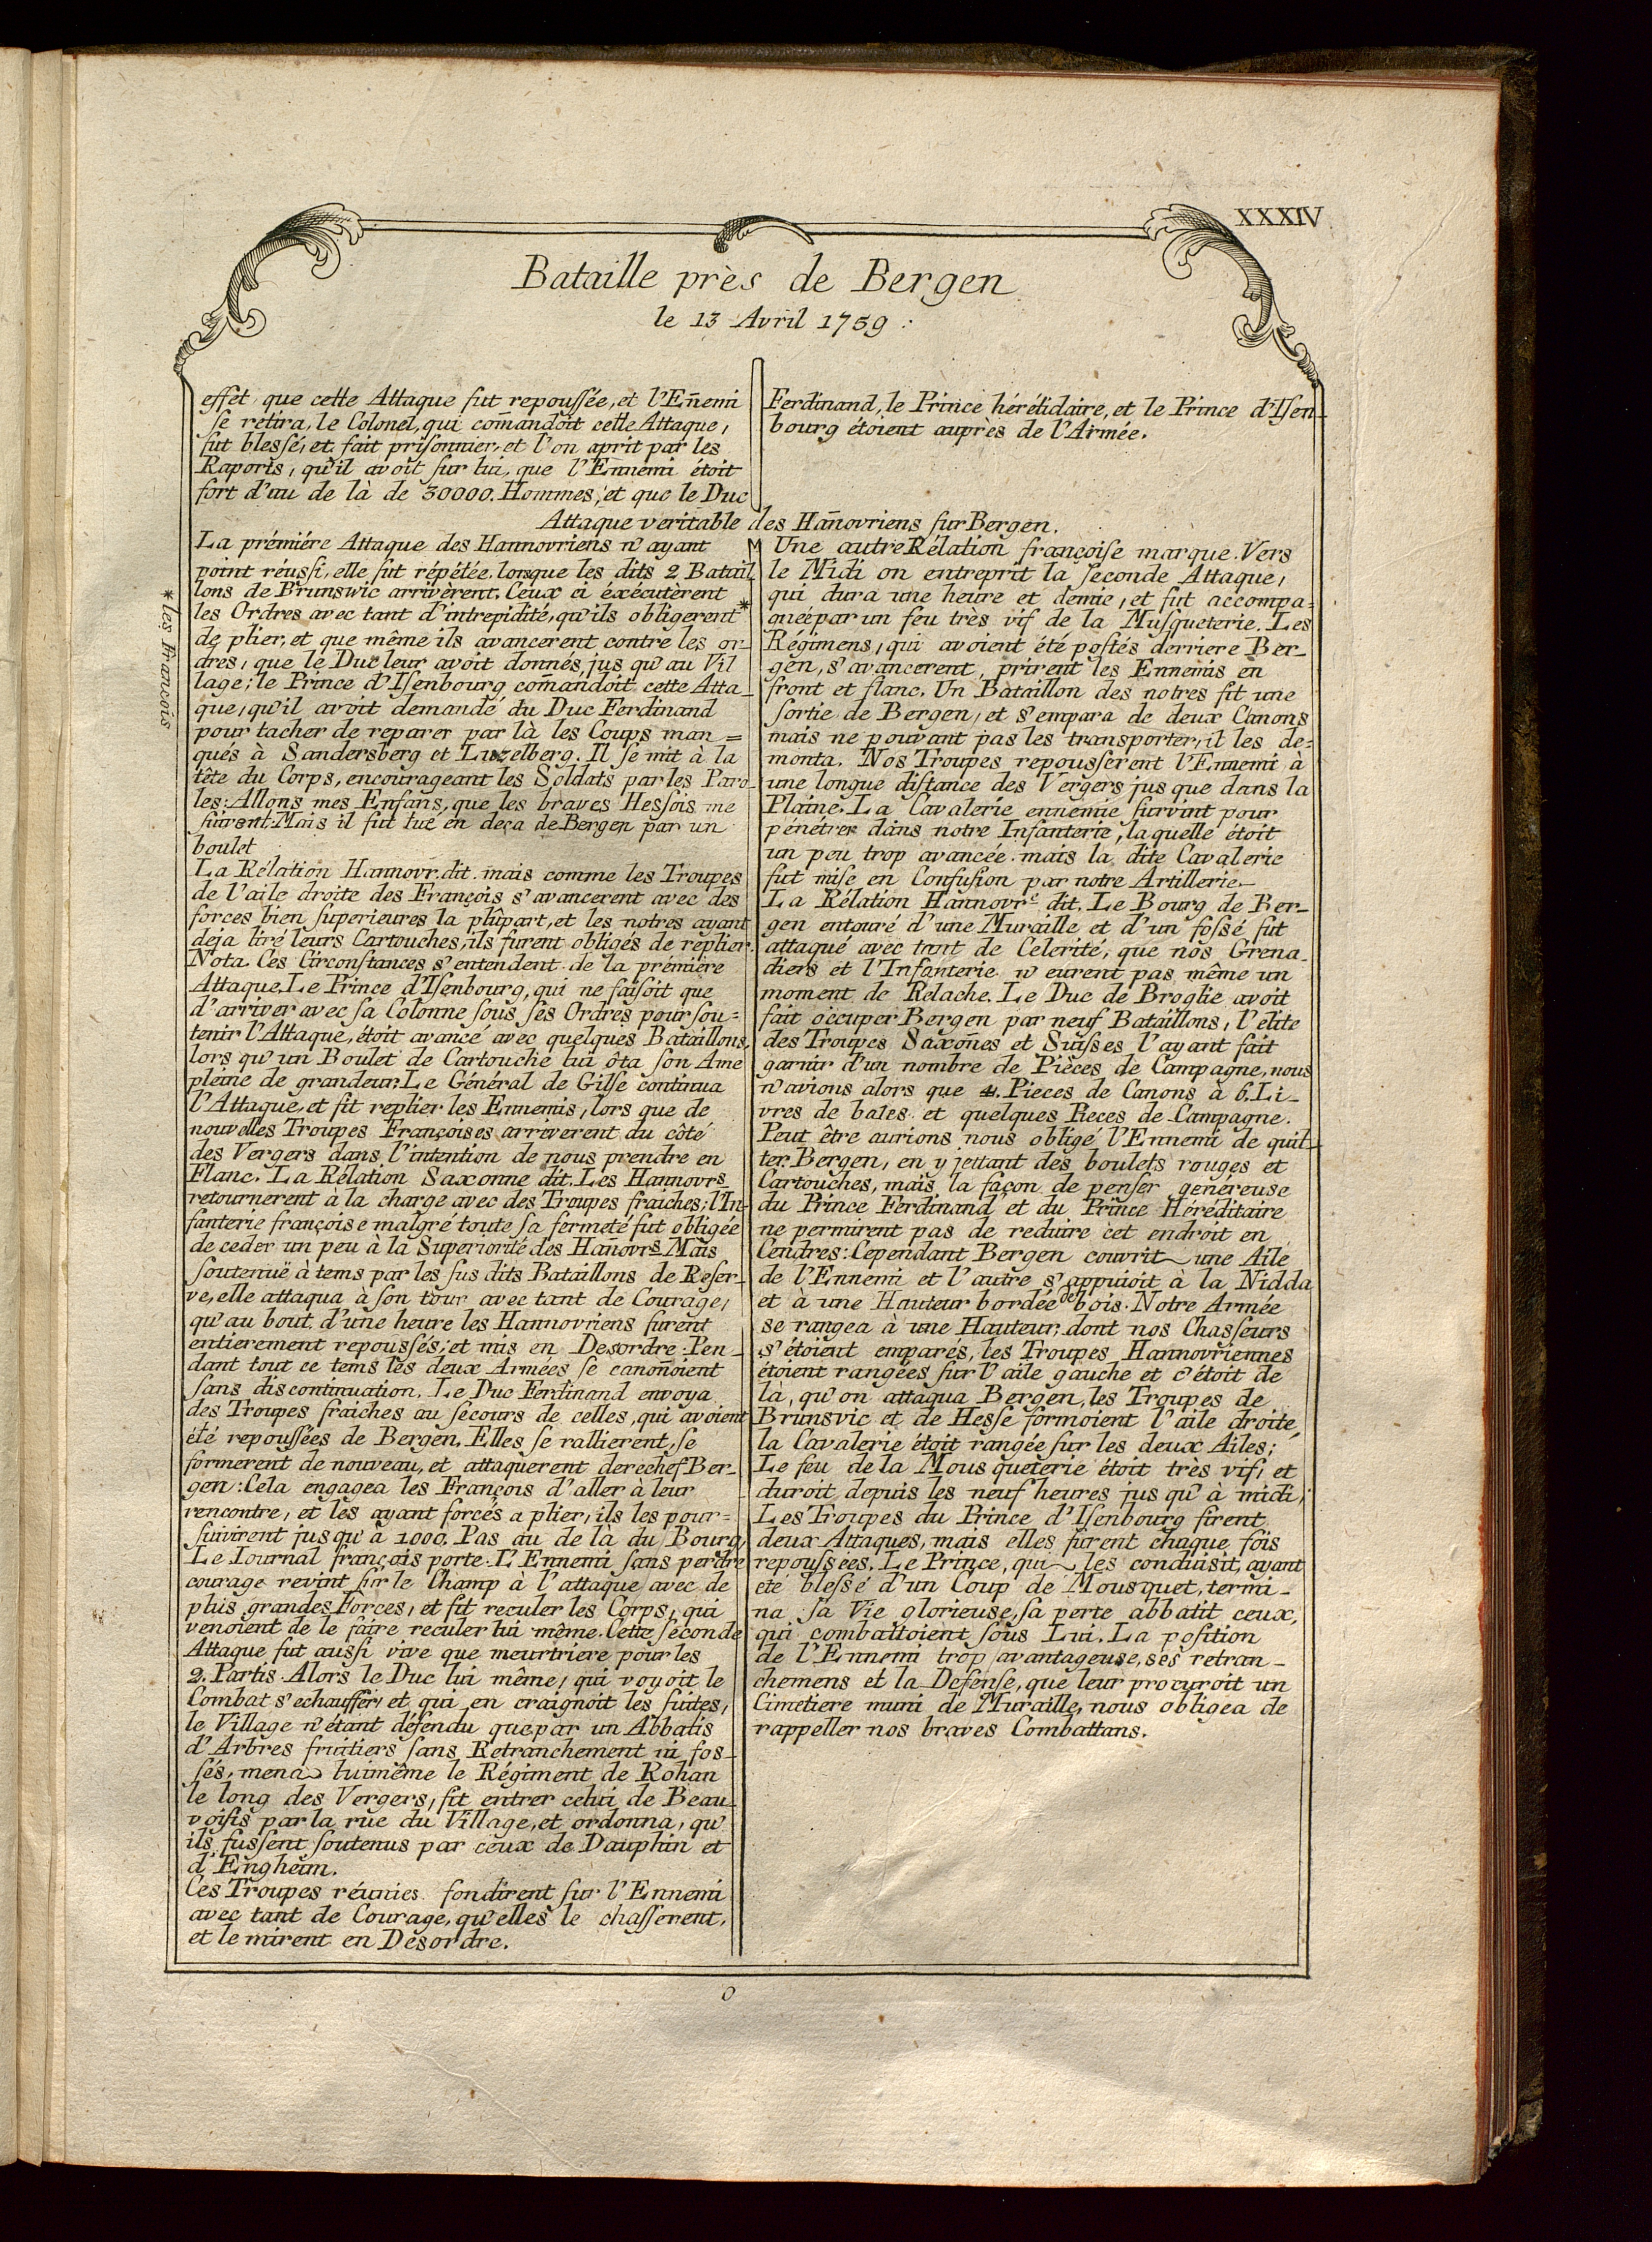 XXXIV
Bataille près de Bergen
le 13 Avril 1759 :
effet, que cette Attaque fut repoussée, et l'Eñemi
se rétira, le Colonel, qui com̃andoit cette Attaque,
fut blessé, et fait prisonnier, et l'on aprit par les
Raports, qu'il avoit sur lui, que l'Ennemi étoit
fort d'au de là de 30000. Hommes, et que le Duc
Ferdinand, le Prince hérétidaire, et le Prince d'Isen-
bourg étoient auprès de l'Armée.
Attaque veritable des Hañovriens sur Bergen.
La prémiére Attaque des Hannovriens n'ayant
point réussi, elle fut répétée, lorsque les dits 2 Batail
lons de Brunswic arrivèrent. Ceux ci éxécutèrent
les Ordres avec tant d'intrepidité, qu'ils obligerent*
de plier, et que même ils avancerent contre les or-
dres, que le Duc leur avoit donnés, jus qu'au Vil
lage; le Prince d'Isenbourg com̃andoit cette Atta-
que, qu'il avoit demandé du Duc Ferdinand
pour tacher de reparer par là les Coups man=
qués à Sandersberg et Luzelberg. Il se mit à la
tête du Corps, encourageant les Soldats par les Paro-
les: Allons mes Enfans, que les braves Hessois me
suivent. Mais il fut tué en deça de Bergen par un
boulet
La Rélation Hannovr. dit. mais comme les Troupes
de l'aile droite des François s'avancerent avec des
forces bien superieures la plûpart, et les notres ayant
deja tiré leurs Cartouches, ils furent obligés de replier.
Nota. Ces Circonstances s'entendent de la prémière
Attaque. Le Prince d'Isenbourg, qui ne faisoit que
d'arriver avec sa Colonne sous ses Ordres pour sou=
tenir l'Attaque, étoit avancé avec quelques Bataillons,
lors qu'un Boulet de Cartouche lui ôta son Ame
pleine de grandeur. Le Général de Gilse continua
l'Attaque, et fit replier les Ennemis, lors que de
nouvelles Troupes Françoises arriverent du côté
des Vergers dans l'intention de nous prendre en
Flanc. La Rélation Saxonne dit. Les Hannovrs
retournerent à la charge avec des Troupes fraiches; l'In-
fanterie françoise malgré toute sa fermeté fut obligée
de ceder un peu à la Superiorité des Hañovrs. Mais
soutenuë à tems par les sus dits Bataillons de Reser-
ve, elle attaqua à son tour avec tant de Courage,
qu'au bout d'une heure les Hannovriens furent
entierement repoussés; et mis en Desordre. Pen-
dant tout ce tems les deux Armées se canoñoient
sans discontinuation. Le Duc Ferdinand envoya
des Troupes fraiches au secours de celles, qui avoient
été repoussées de Bergen. Elles se rallierent, se
formerent de nouveau, et attaquerent derechef Ber-
gen: Cela engagea les François d'aller à leur
rencontre, et les ayant forcés a plier, ils les pour=
suivirent jusqu'à 1000. Pas au de là du Bourg,
Le Iournal françois porte. L'Ennemi sans perdre
courage revint sur le Champ à l'attaque avec de
plus grandes Forces, et fit reculer les Corps, qui
venoient de le faire reculer lui même. Cette seconde
Attaque fut aussi vive que meurtriere pour les
2. Partis. Alors le Duc lui même, qui voyoit le
Combat s'echauffer, et qui en craignoit les suites,
le Village n'étant défendu que par un Abbatis
d'Arbres fruitiers sans Retranchement ni fos-
sés, mena luimême le Régiment de Rohan
le long des Vergers, fit entrer celui de Beau-
voisis par la rue du Village, et ordonna, qu'
ils fussent soutenus par ceux de Dauphin et
d'Engheim.
Ces Troupes réunies fondirent sur l'Ennemi
avec tant de Courage, qu'elles le chasserent,
et le mirent en Desordre.
* les François
Une autre Rélation françoise marque. Vers
le Midi on entreprit la seconde Attaque,
qui dura une heure et demie, et fut accompa=
gnée par un feu très vif de la Musqueterie. Les
Régimens, qui avoient été postés derriere Ber-
gen, s'avancerent, prirent les Ennemis en
front et flanc. Un Bataillon des notres fit une
sortie de Bergen, et s'empara de deux Canons
mais ne pouvant pas les transporter, il les de=
monta. Nos Troupes repousserent l'Ennemi à
une longue distance des Vergers jus que dans la
Plaine. La Cavalerie ennemie survint pour
pénétrer dans notre Infanterie, la quelle étoit
un peu trop avancée. mais la dite Cavalerie
fut mise en Confusion par notre Artillerie.
La Rélation Hannovre. dit. Le Bourg de Ber-
gen entouré d'une Muraille et d'un fossé fut
attaqué avec tant de Celerité, que nos Grena-
diers et l'Infanterie n'eurent pas même un
moment de Relache. Le Duc de Broglie avoit
fait occuper Bergen par neuf Bataillons, l'élite
des Troupes Saxoñes et Suisses l'ayant fait
garnir d'un nombre de Pièces de Campagne, nous
n'avions alors que 4. Pieces de Canons à 6. Li-
vres de bales et quelques Pieces de Campagne.
Peut être aurions nous obligé l'Ennemi de quit-
ter Bergen, en y jettant des boulets rouges et
Cartouches, mais la façon de penser genéreuse
du Prince Ferdinand et du Prince Héréditaire
ne permirent pas de reduire cet endroit en
Cendres: Cependant Bergen couvrit une Aile
de l'Ennemi et l'autre s'appuioit à la Nidda
et à une Hauteur bordée de bois. Notre Armée
se rangea à une Hauteur, dont nos Chasseurs
s'étoient emparés, les Troupes Hannovriennes
étoient rangées sur l'aile gauche et c'étoit de
là, qu'on attaqua Bergen, les Troupes de
Brunsvic et de Hesse formoient l'aile droite,
la Cavalerie étoit rangée sur les deux Ailes;
Le feu de la Mousqueterie étoit très vif, et
duroit depuis les neuf heures jus qu'à midi,
Les Troupes du Prince d'Isenbourg firent
deux Attaques, mais elles furent chaque fois
repoussées. Le Prince, qui les conduisit, ayant
eté blessé d'un Coup de Mousquet, termi-
na sa Vie glorieuse, sa perte abbatit ceux,
qui combattoient sous Lui. La position
de l'Ennemi trop avantageuse, ses retran-
chemens et la Defense, que leur procuroit un
Cimetiere muni de Muraille, nous obligea de
rappeller nos braves Combattans.
O